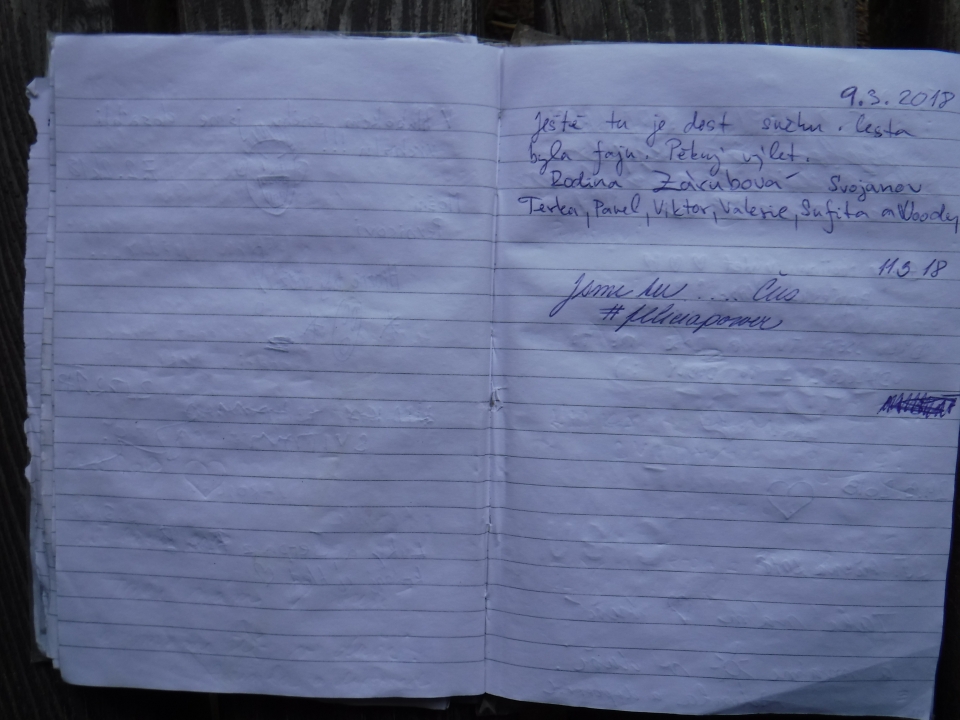 9.3.2018
Ještě tu je dost sněhu. Cesta
byla fajn. Pěkný výlet.
Rodina Zárubová Svojanov
Terka, Pavel, Viktor, Valerie, Sufita a Woody
11.3 18
Jsme tu .... Čus
#feliciapower